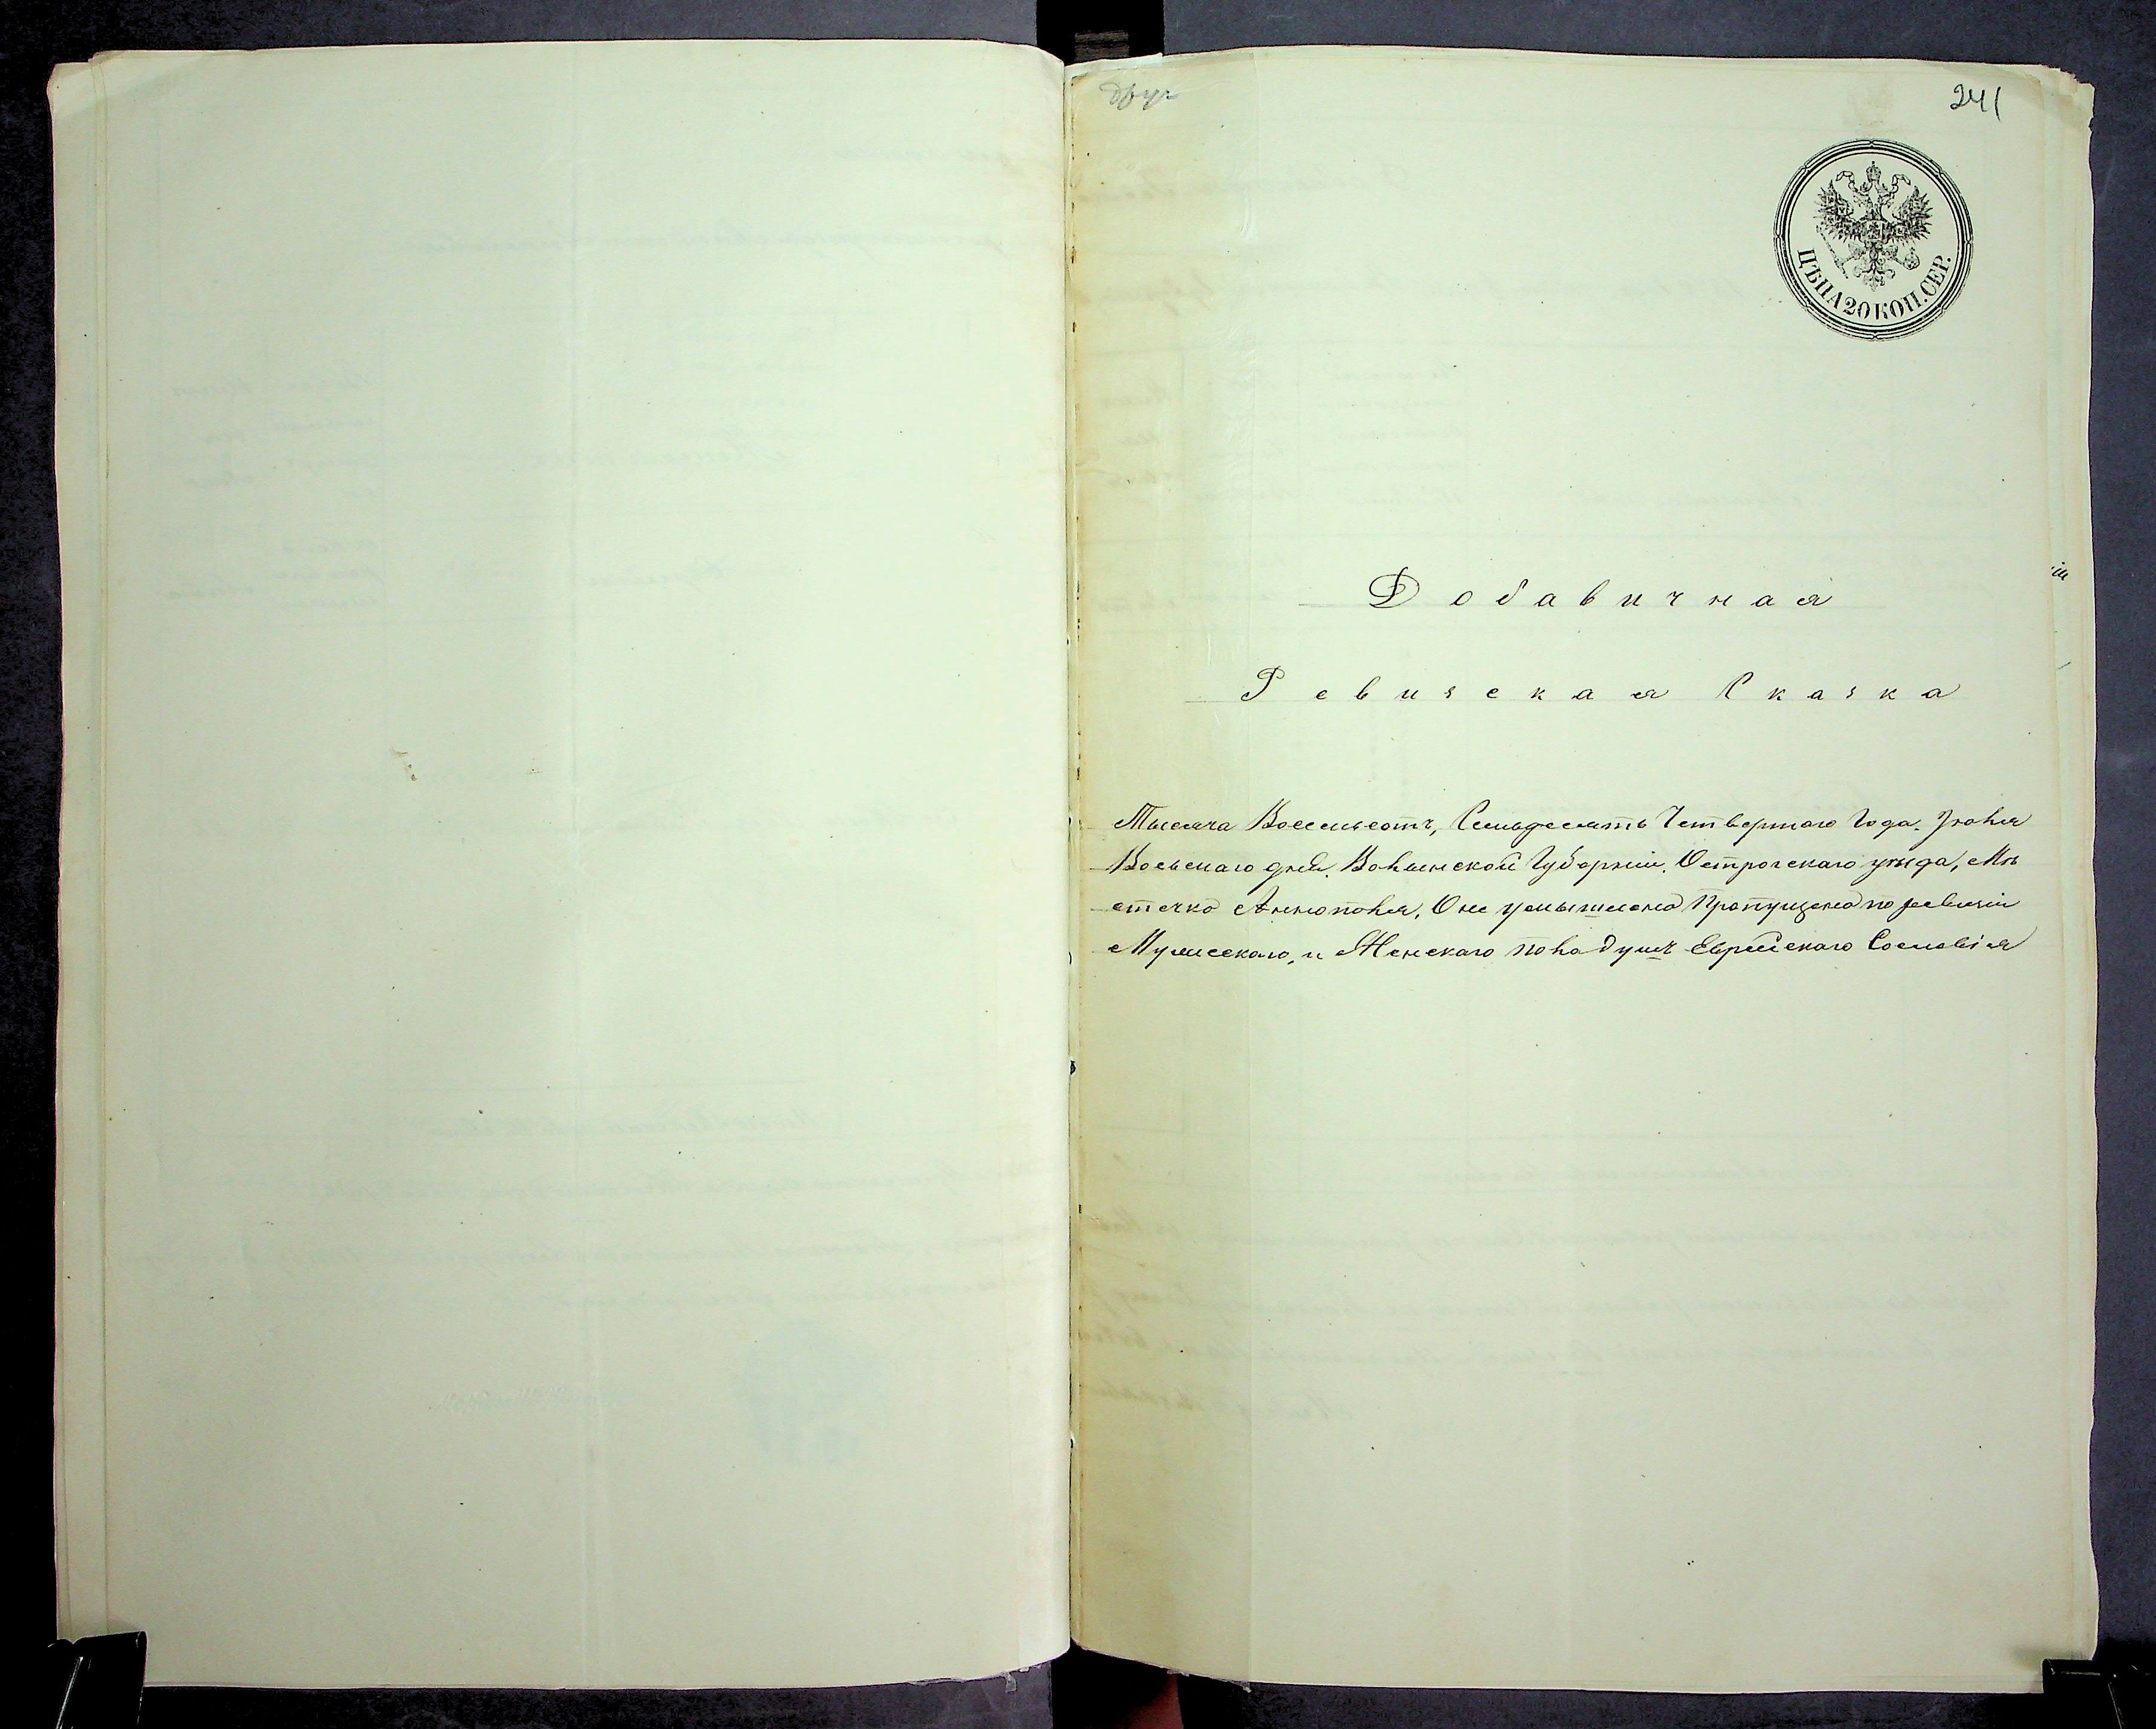 241
ЦѢНА 20 КОП. СЕР.
Добавичная
Ревизская Сказка
Тысяча Восемьсотъ, Семьдесятъ Четвертаго Года. Іюня
Восьмаго дня. Волынской Губерніи. Острогскаго уѣзда, Мѣ
стечко Аннополя, О не умышлено Пропущено по ревизіи
Мужескаго, и Женскаго пола душъ Еврейскаго Сословія